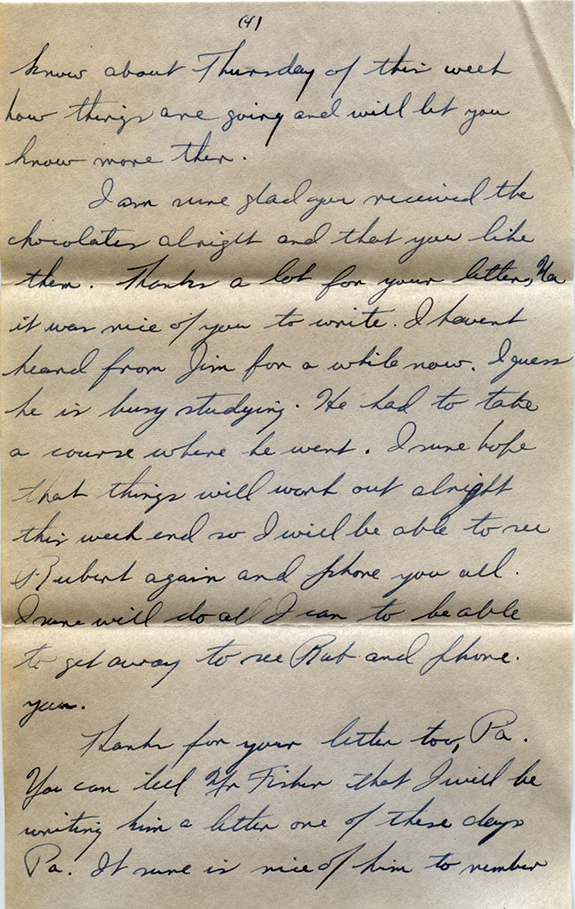 (4)
know about Thursday of this week
how things are going and will let you
know more then.
I am sure glad you received the
chocolates alright and that you like
them. Thanks a lot for your letters, Ma
it was nice of you to write. I havent
heard from Jim for a while now. I guess
he is busy studying. He had to take
a course where he went. I sure hope
that things will work out alright
this week end so I will be able to see
Rubert again and phone you all.
I sure will do all I can to be able
to get away to see Rub and phone.
you.
Thanks for your letter too, Pa.
You can tell Mr Fisher that I will be
writing him a letter one of these days
Pa. It sure is nice of him to rember